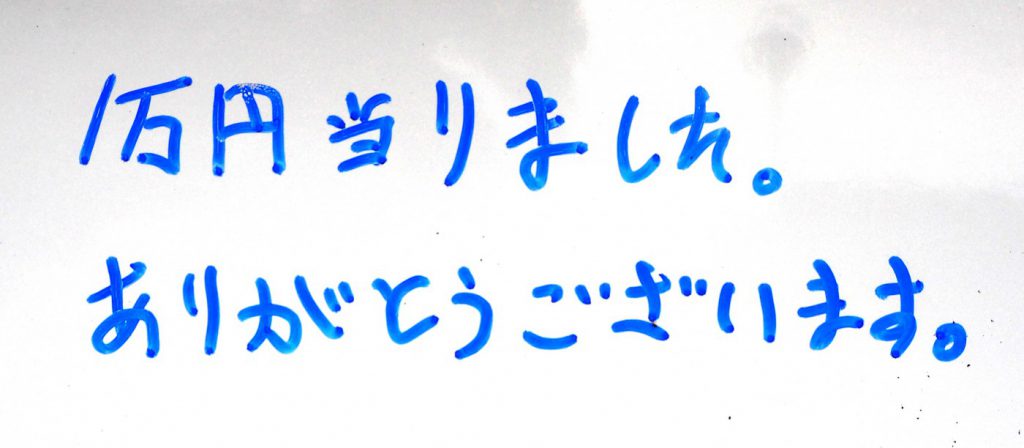 1万円当りました。
ありがとうございます。